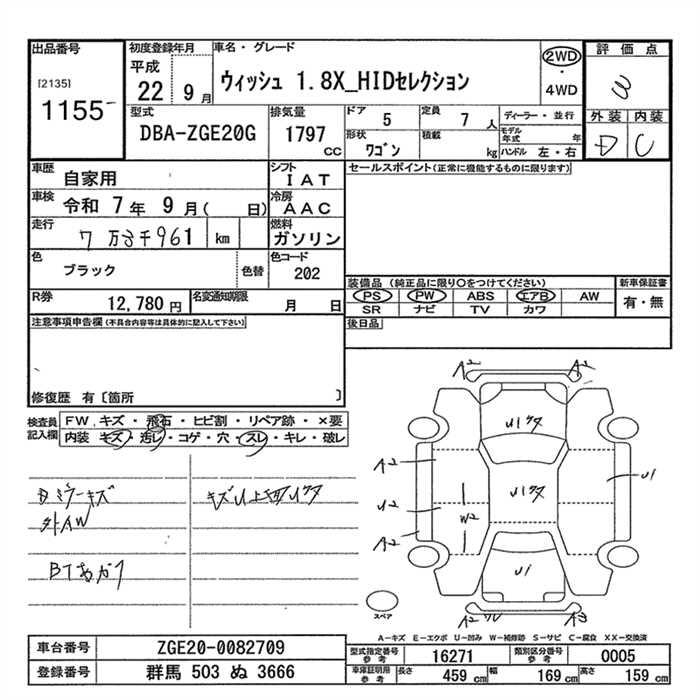 出品番号
[2135]
1155
初度登録年月
平成
22 9月
車名・グレード
ウィッシュ 1.8X_HIDセレクション
2WD
・
4WD
評価点
3
外装 内装
D C
型式
DBA-ZGE20G
排気量
1797
CC
ドア
5
定員
7 人
形状
ワゴン
積載
kg
ディーラー・並行
モデル
年式 年
ハンドル 左・右
車歴
自家用
シフト
IAT
車検
令和 7年 9月( 日)
冷房
AAC
走行
7万3千961 km
燃料
ガソリン
色
ブラック
色替
色コード
202
R券
12,780 円
名変通知期限
月 日
セールスポイント(正常に機能するものに限ります)
装備品(純正品に限り○をつけてください)
PS PW ABS エアB AW
SR ナビ TV カワ
新車保証書
有・無
後日品
注意事項申告欄(不具合内容等は具体的に記入して下さい)
修復歴 有〔箇所 〕
検査員
記入欄
FW、キズ・飛石・ヒビ割・リペア跡・×要
内装 キズ・汚レ・コゲ・穴・スレ・キレ・破レ
ミラーキズ
外AW
A2 A2
U1
A2
U2
A2
W2
U1
U1
U1
A2
A2
スペア
A−キズ E−エクボ U−凹み W−補修跡 S−サビ C−腐食 XX−交換済
車台番号
ZGE20-0082709
登録番号
群馬 503 ぬ 3666
型式指定番号
参考
16271
類別区分番号
参考
0005
車庫証明用
参考
長さ
459 cm
幅
169 cm
高さ
159 cm